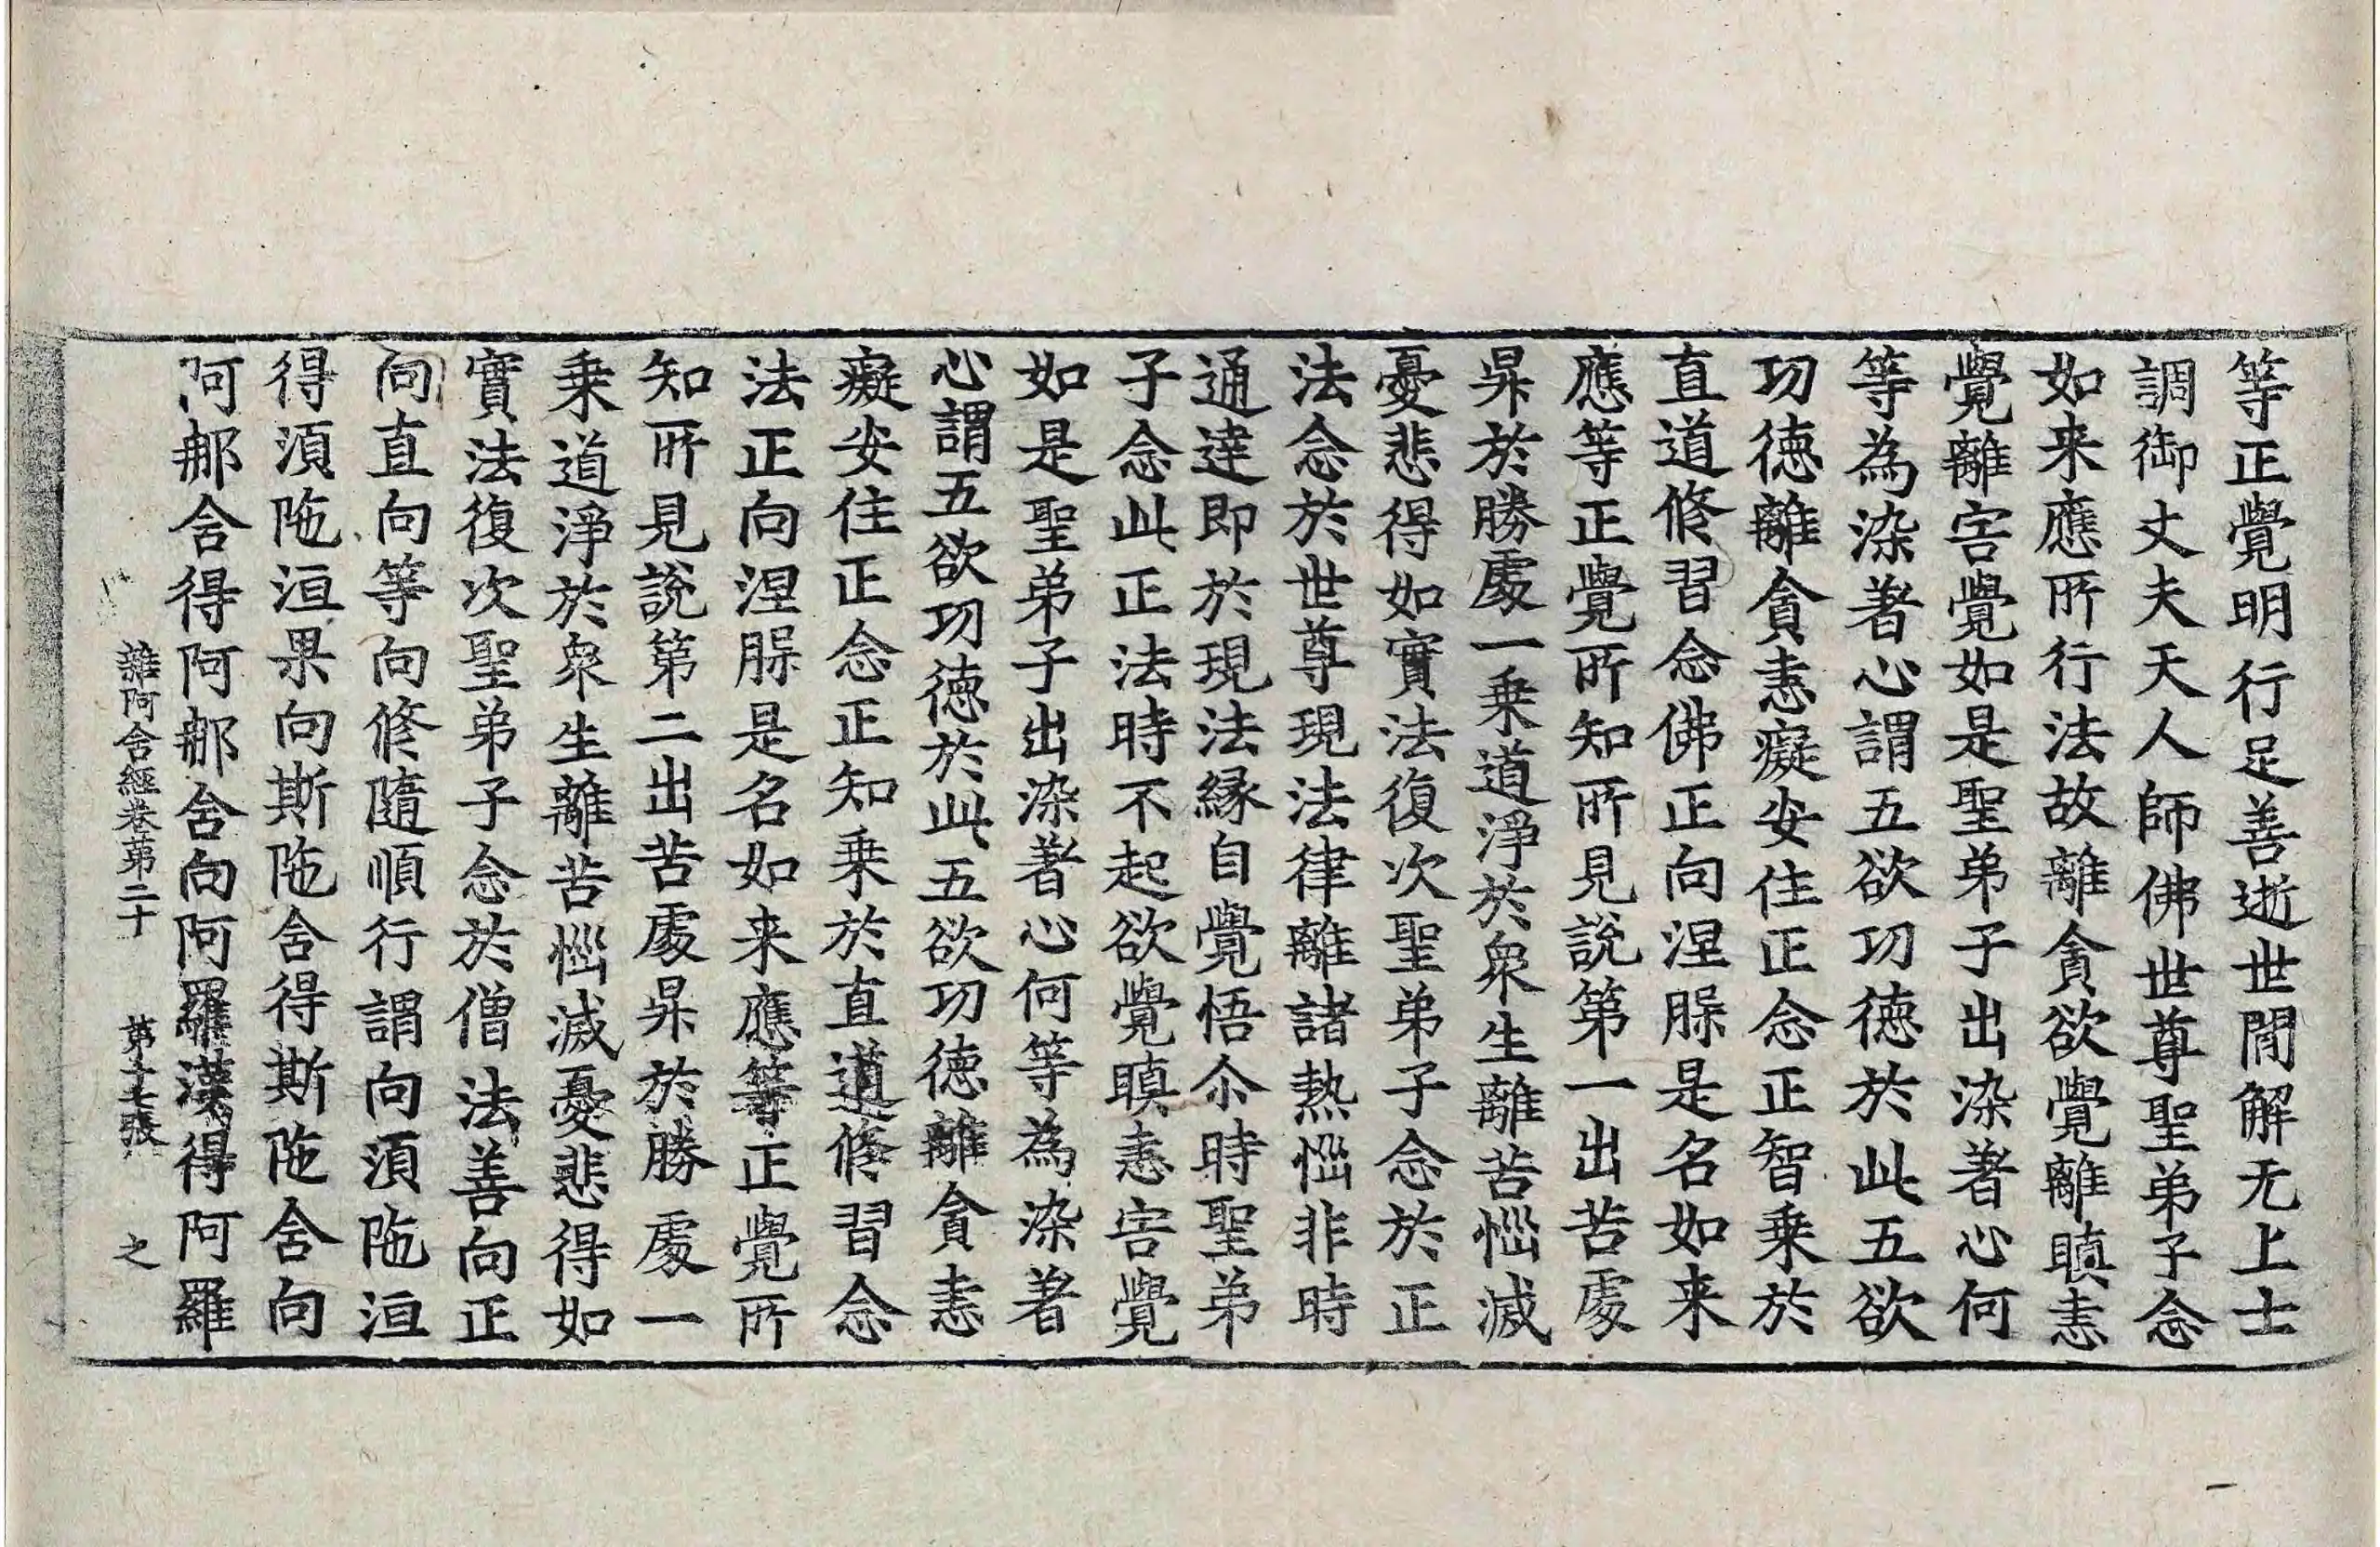 等正覺明行足善逝世閒解无上士
調御丈夫天人師佛世尊聖弟子念
如来應所行法故離貪欲覺離瞋恚
覺離害覺如是聖弟子出染著心何
等為染著心謂五欲功德於此五欲
功德離貪恚癡安住正念正智乗於
直道修習念佛正向涅槃是名如来
應等正覺所知所見說第一出苦處
昇於勝處一乗道淨於衆生離苦惱滅
憂悲得如實法復次聖弟子念於正
法念於世尊現法律離諸熱惱非時
通達即於現法縁自覺悟尒時聖弟
子念此正法時不起欲覺瞋恚害覺
如是聖弟子出染著心何等為染著
心謂五欲功德於此五欲功德離貪恚
癡安住正念正知乗於直道修習念
法正向涅槃是名如来應等正覺所
知所見說第二出苦處昇於勝處一
乗道淨於衆生離苦惱滅憂悲得如
實法復次聖弟子念於僧法善向正
向直向等向修隨順行謂向湏陁洹
得湏陁洹果向斯陁含得斯陁含向
阿那含得阿那含向阿羅漢得阿羅
雜阿含經卷第二十 第十七張 之